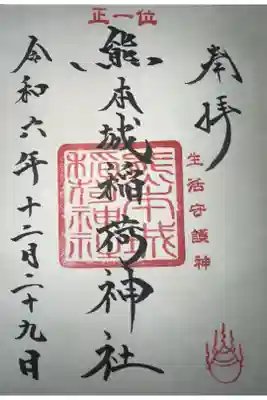 奉拝
生活守護神
正一位
熊本城稲荷神社
熊本城稲荷神社
令和六年十二月二十九日